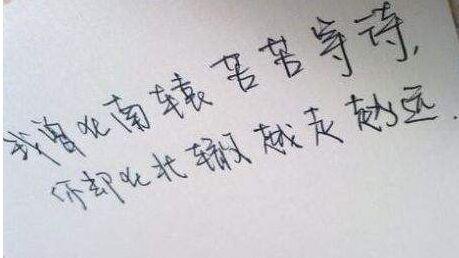 我曾北南辕苦苦等待,
你却北北辙越走越远.